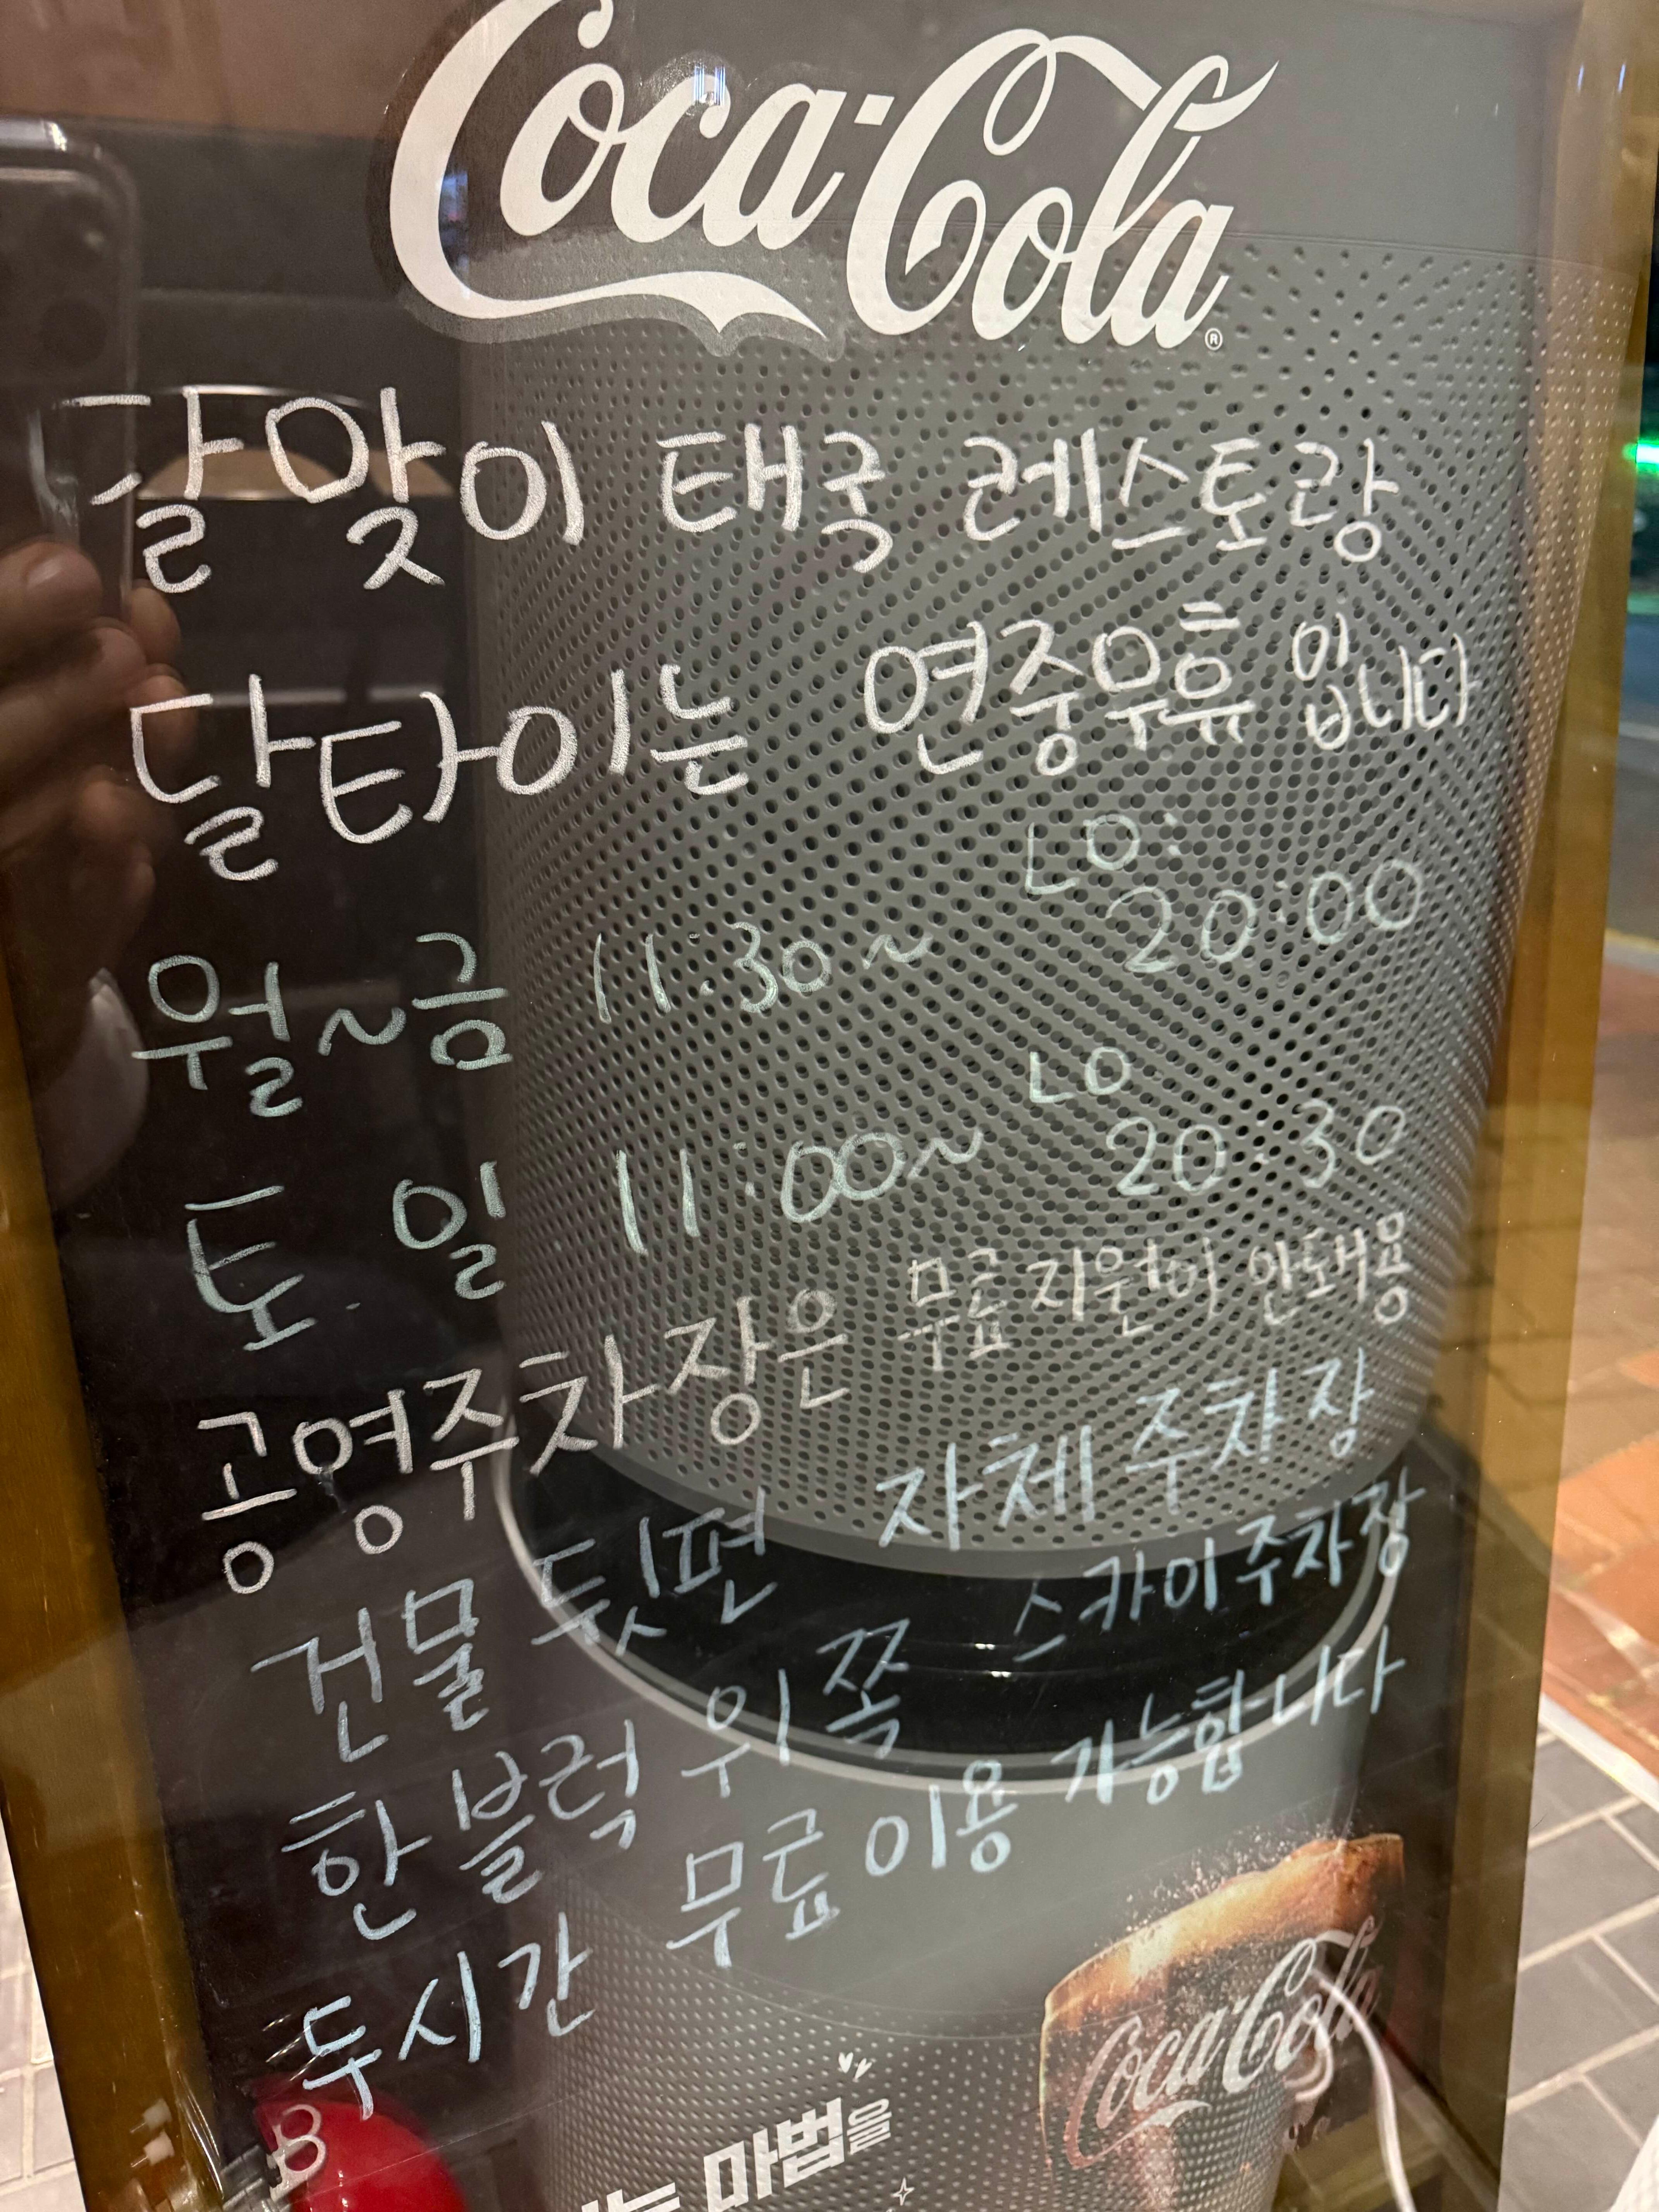 Coca-Cola
달맞이 태국 레스토랑
달타이는 연중무휴 입니다
월~금 11:30~ LO: 20:00
토. 일 11:00~ LO 20:30
공영주차장은 무료지원이 안돼용
건물 뒷편 자체 주차장
한블럭 위쪽 스카이주차장
두시간 무료이용 가능합니다
마법을
Coca-Cola